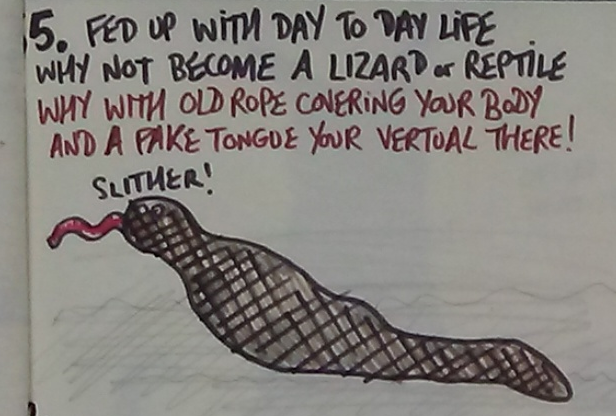 5. FED UP WITH DAY TO DAY LIFE
WHY NOT BECOME A LIZARD or REPTILE
WHY WITH OLD ROPE COVERING YOUR BODY
AND A FAKE TONGUE YOUR VERTUAL THERE!
SLITHER!